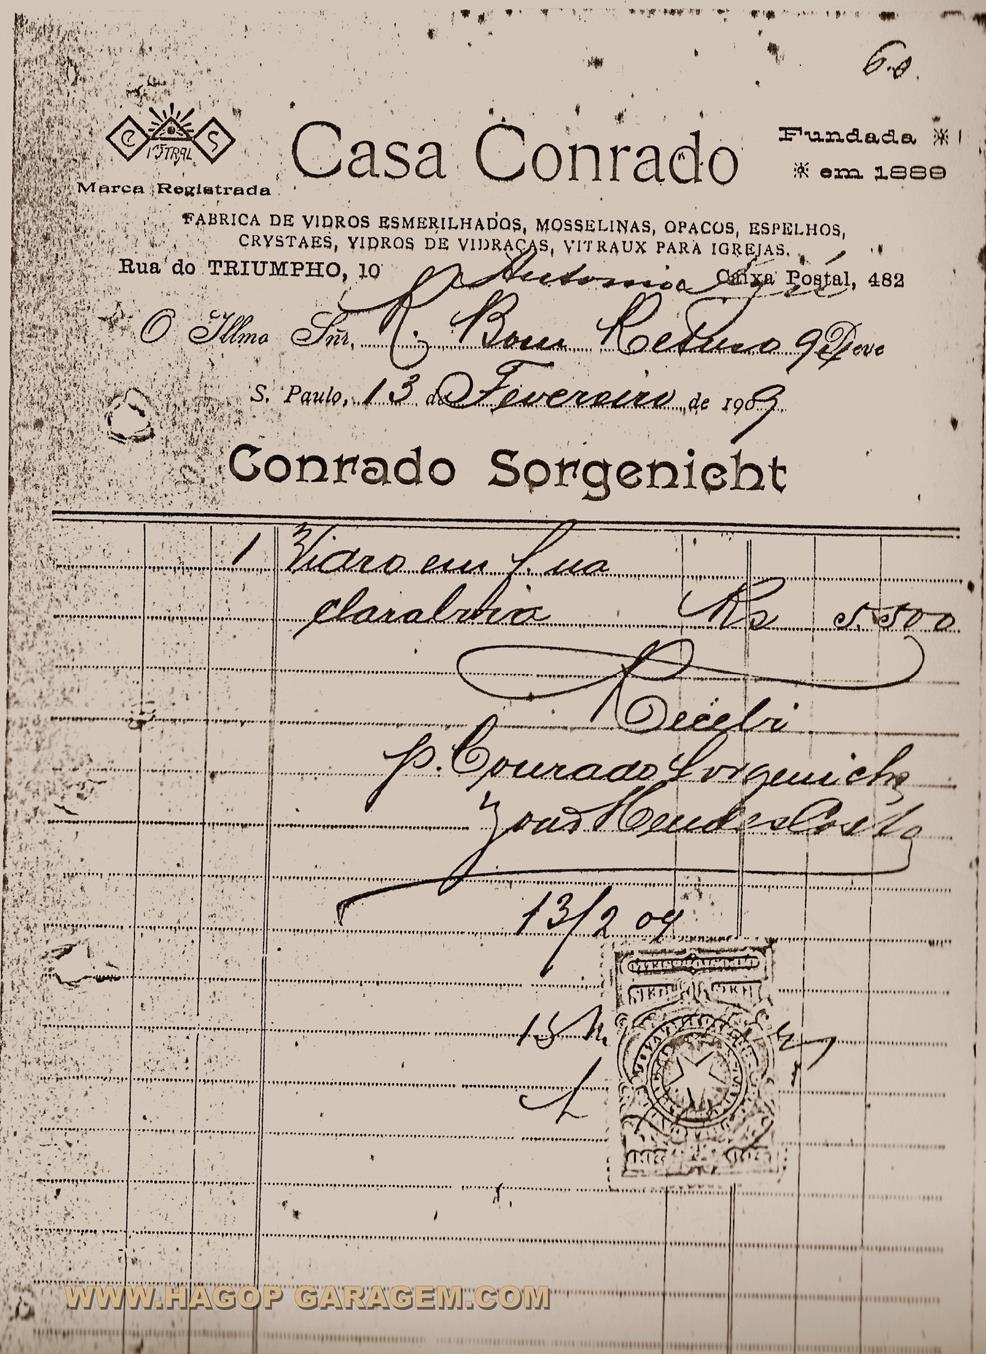 6.0
C S
Casa Conrado
Fundada
em 1889
Marca Registrada
FABRICA DE VIDROS ESMERILHADOS, MOSSELINAS, OPACOS, ESPELHOS,
CRYSTAES, VIDROS DE VIDRAÇAS, VITRAUX PARA IGREJAS.
Rua do TRIUMPHO, 10
Antonio
Caixa Postal, 482
O Illmo Sñr. R. Bom Retiro Deve
S. Paulo, 13 de Fevereiro de 1909
Conrado Sorgenicht
1 Vidro em
claraboia Rs 5.500
Recebi
p. Conrado Sorgenicht
Mendes Costa
13/2 09
WWW.HAGOP GARAGEM.COM